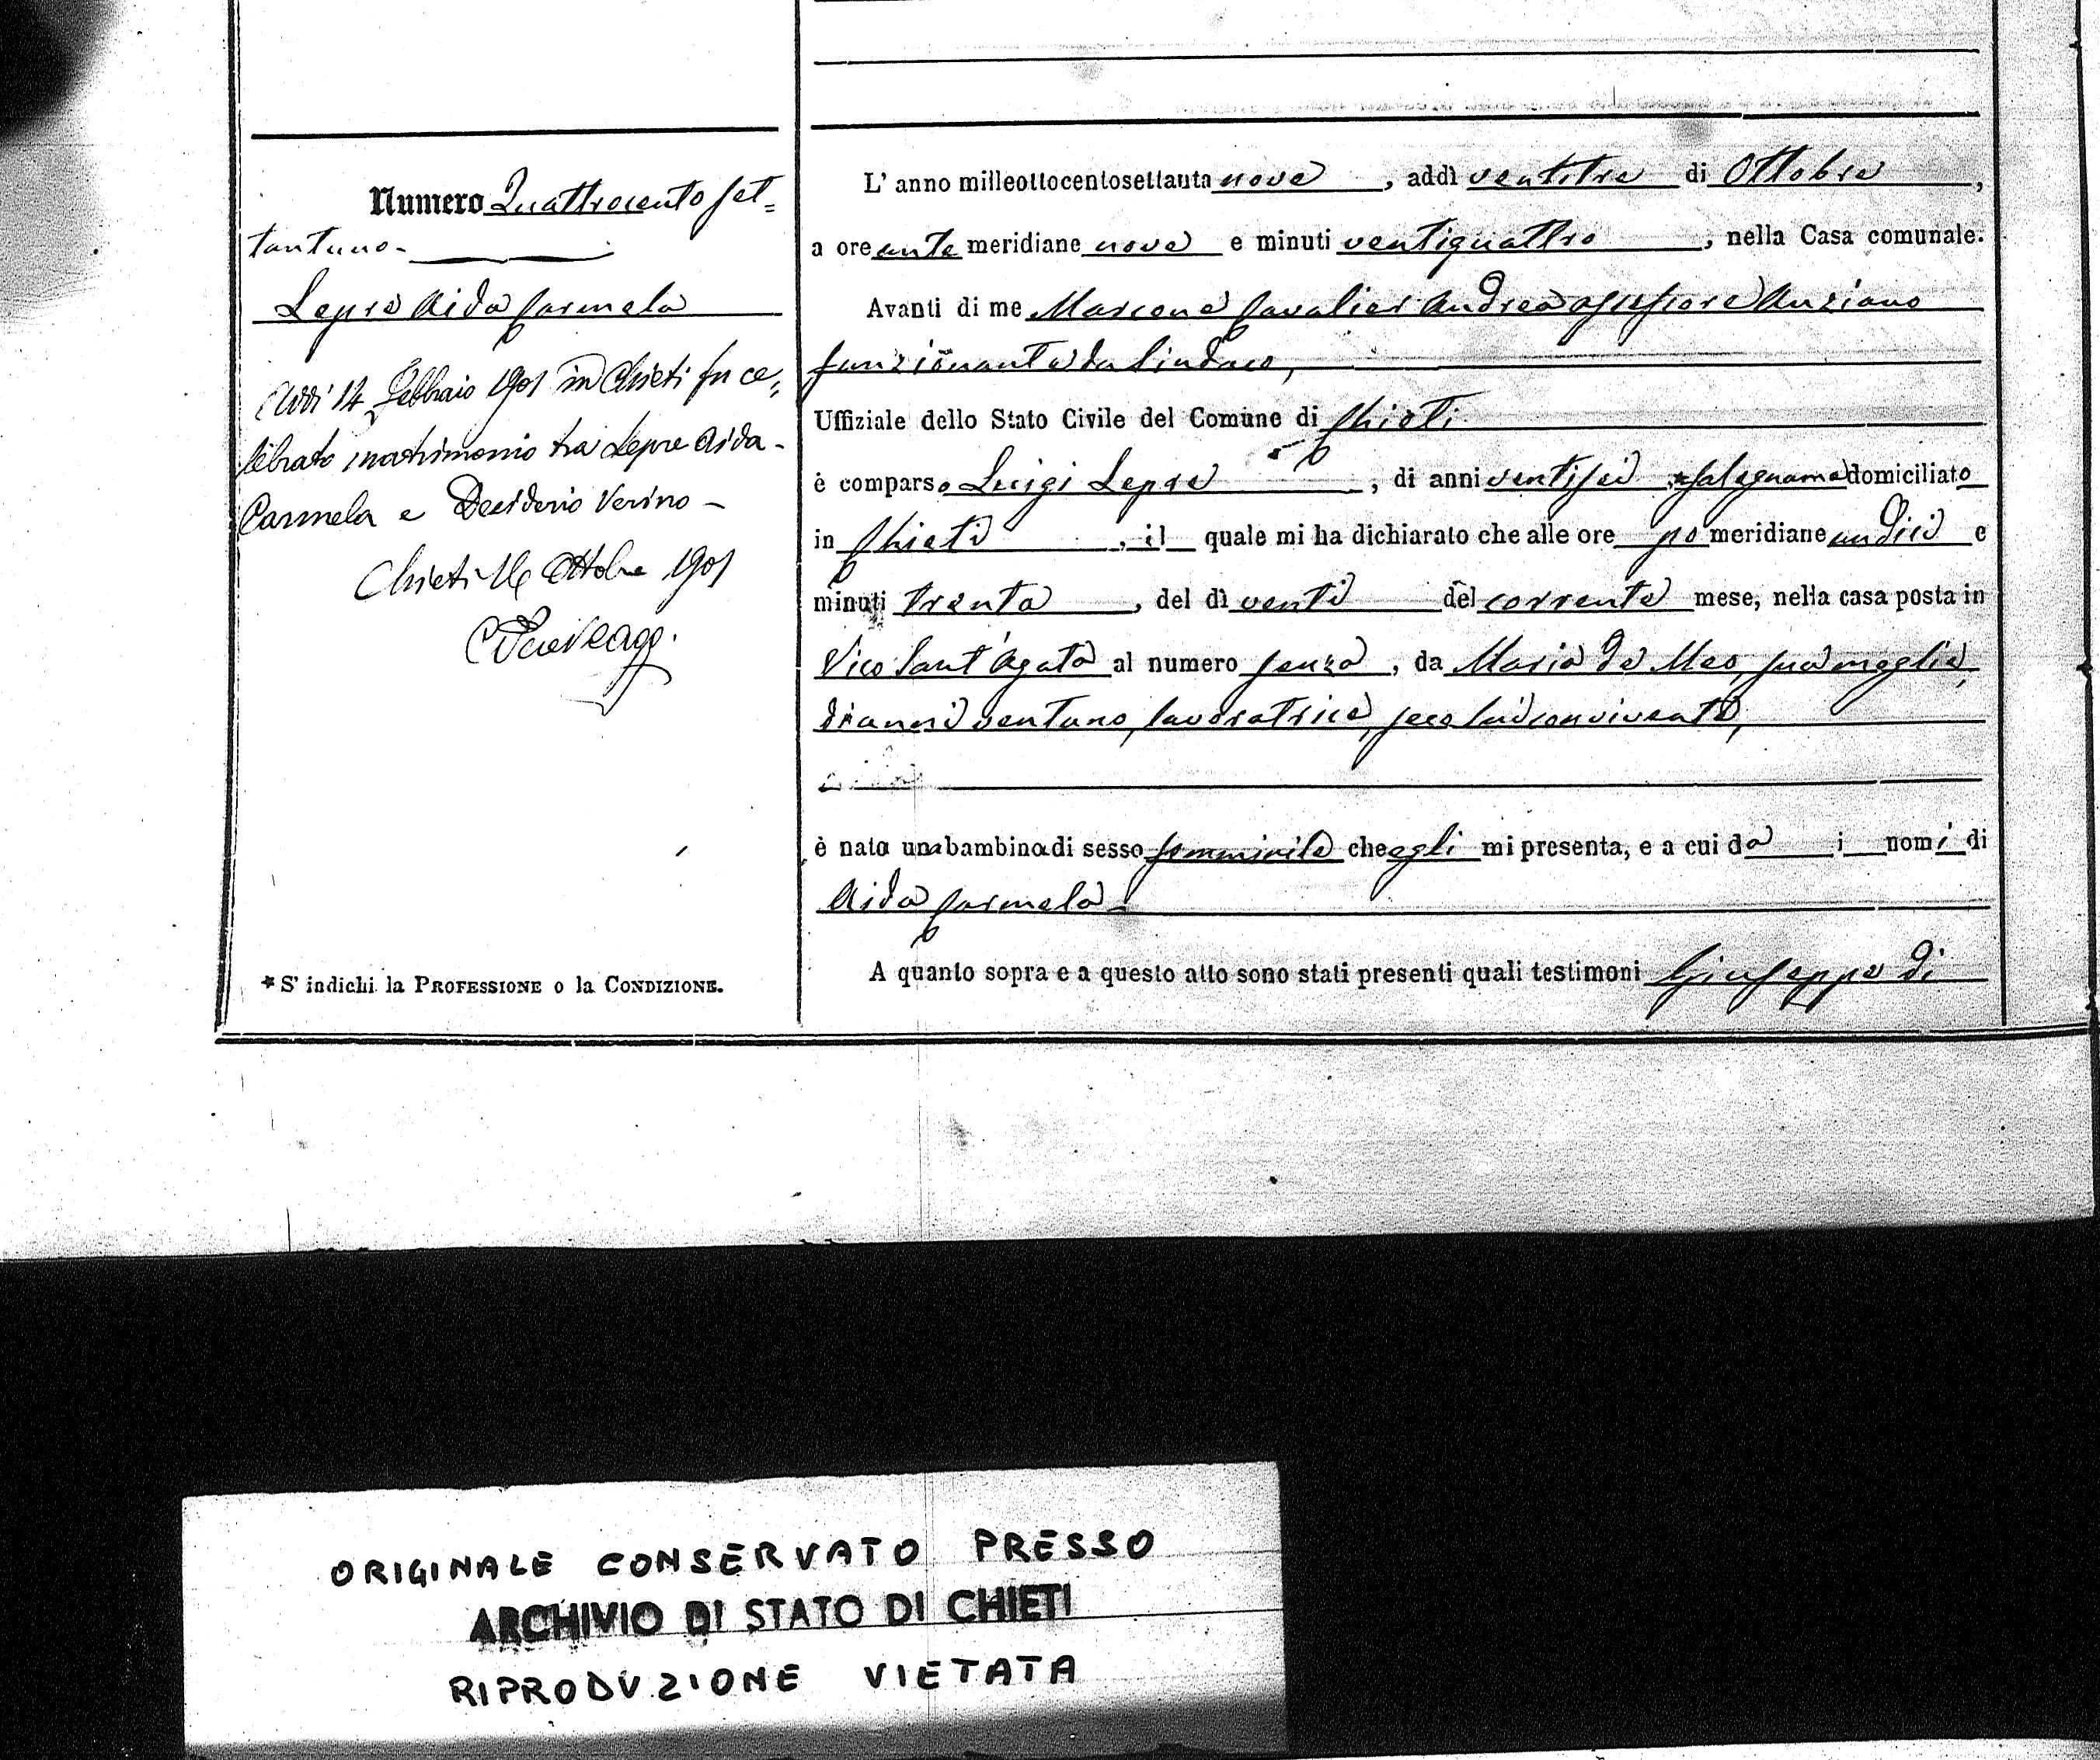 Numero Quattrocento set=
tantuno-
Lepre Aida Carmela
Addì 14 Febbraio 1901 in Chieti fu ce=
lebrato matrimonio tra Lepre Aida-
Carmela e Desiderio Verino-
Chieti 16 Ottobre 1901
* S' indichi la PROFESSIONE o la CONDIZIONE.
L' anno milleottocentosettanta nove, addì ventitre di Ottobre,
a ore ante meridiane nove e minuti ventiquattro, nella Casa comunale.
Avanti di me Marcone Cavalier Andrea assessore Anziano
funzionante da Sindaco,
Uffiziale dello Stato Civile del Comune di Chieti
è comparso Luigi Lepre, di anni ventisei * falegname domiciliato
in Chieti, il quale mi ha dichiarato che alle ore po meridiane undici e
minuti trenta, del dì venti del corrente mese, nella casa posta in
Vico Sant'Agata al numero senza, da Maria de Meo, sua moglie,
di anni ventuno, lavoratrice, seco lui convivente,
è nata una bambina di sesso femminile che egli mi presenta, e a cui dà i nomi di
Aida Carmela-
A quanto sopra e a questo atto sono stati presenti quali testimoni Giuseppe di
ORIGINALE CONSERVATO PRESSO
ARCHIVIO DI STATO DI CHIETI
RIPRODUZIONE VIETATA